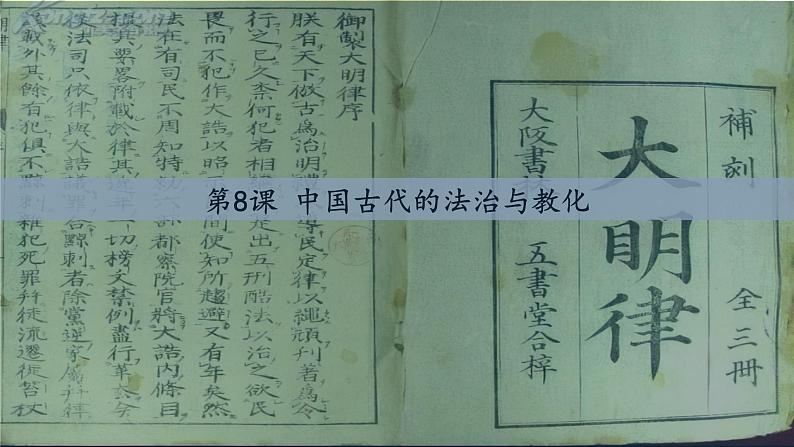 第8课 中国古代的法治与教化
補刻
全三冊
大明律
大阪書
五書堂合梓
御製大明律序
朕有天下倣古為治明禮導民定律以繩頑刊著為令
行之已久柰何犯者相是出五刑酷法以治之欲民
畏而不犯作大誥以昭間使知所趨避又有年矣然
法在有司民不周知特六部都察院官將大誥内條目
撮其要畧附載於律其年一切榜文禁例盡行革去今
後法司只依律與大誥議罪合黥刺者除黨逆家屬并律
該載外其餘有犯俱不黥刺雜犯死罪并徒流遷徙笞杖